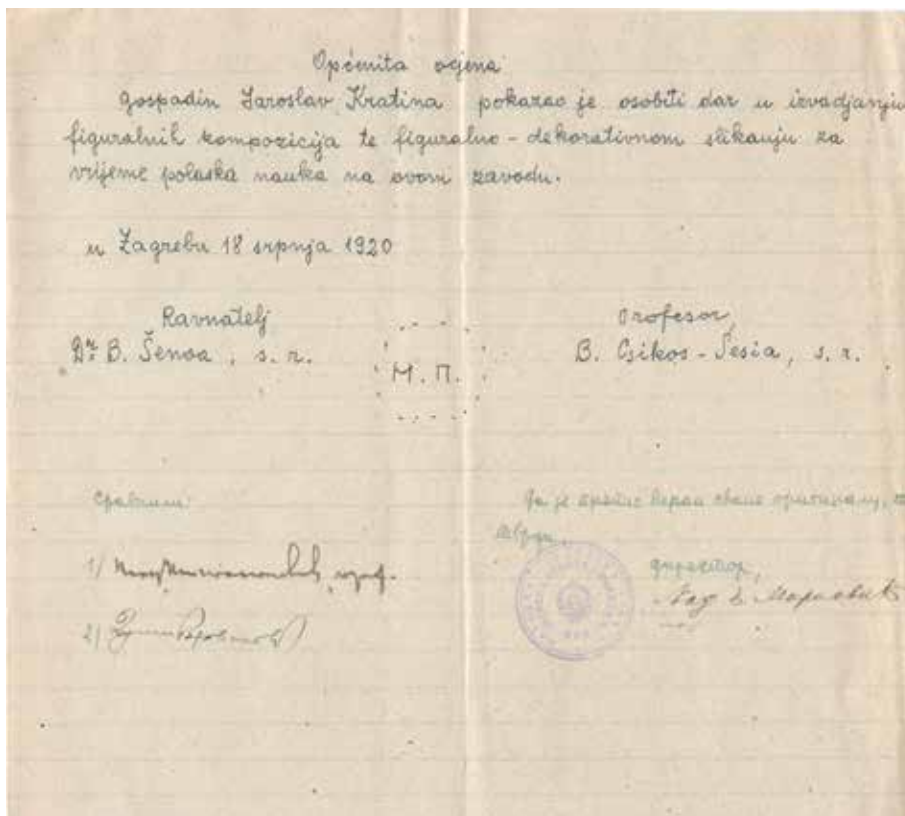 Općenita ocjena
gospodin Jaroslav Kratina pokazao je osobiti dar u izvadjanju
figuralnih kompozicija te figuralno - dekorativnom slikanju za
vrijeme polaska nauka na ovom zavodu.
u Zagrebu 18 srpnja 1920
Ravnatelj
Dr. B. Šenoa, s. r.
М. П.
Profesor,
B. Csikos - Sesia, s. r.
Сравнили
1/
2/
Да је препис веран своме оригиналу,
тврди,
директор,